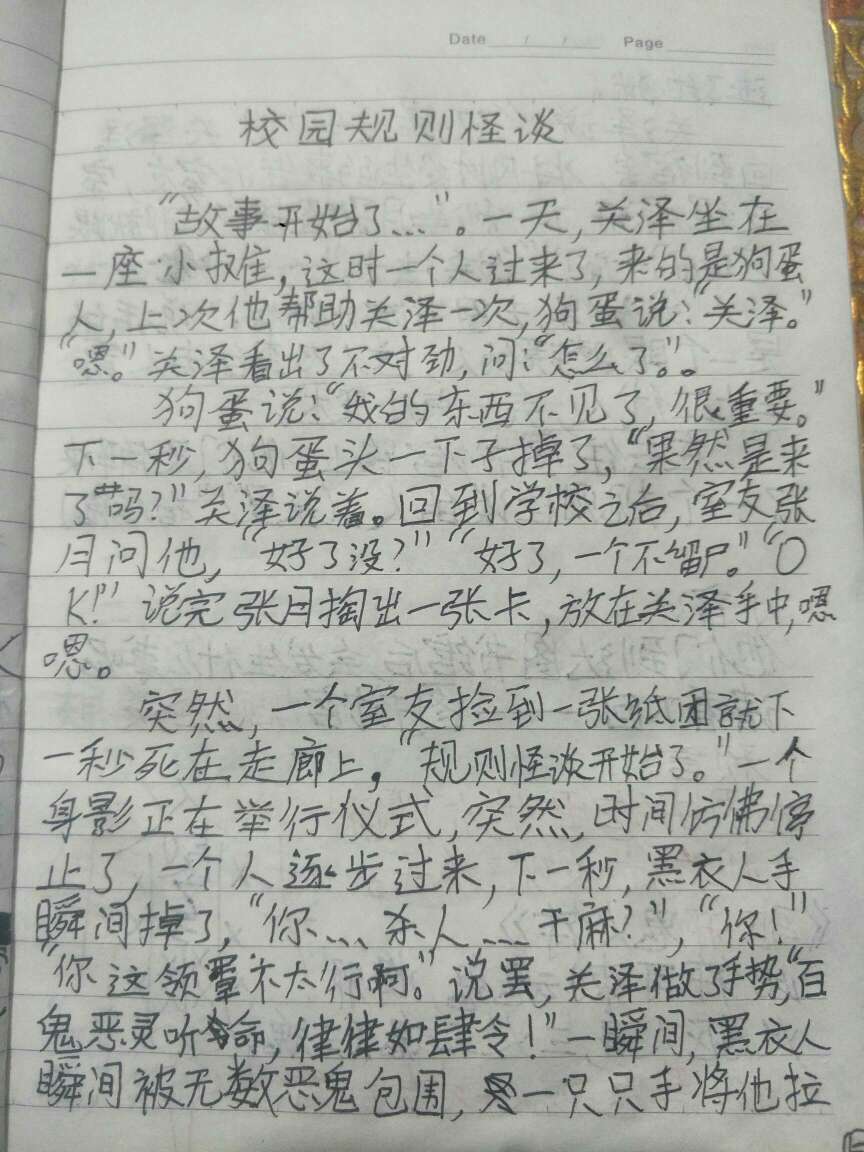 Date / / Page
校园规则怪谈
"故事开始了…"。一天,关泽坐在
一座小摊,这时一个人过来了,来的是狗蛋
人,上次他帮助关泽一次,狗蛋说:"关泽。"
"嗯。"关泽看出了不对劲,问:"怎么了。"。
狗蛋说:"我的东西不见了,很重要。"
下一秒,狗蛋头一下子掉了,"果然是来
了吗?"关泽说着。回到学校之后,室友张
月问他,"好了没?""好了,一个不留。""O
K!"说完张月掏出一张卡,放在关泽手中,嗯
嗯。
突然,一个室友捡到一张纸团就下
一秒死在走廊上,"规则怪谈开始了。"一个
身影正在举行仪式,突然,时间仿佛停
止了,一个人逐步过来,下一秒,黑衣人手
瞬间掉了,"你……杀人……干麻?","你!"
"你这领域不太行啊。"说罢,关泽做了手势,"百
鬼恶灵听命,律律如肆令!"一瞬间,黑衣人
瞬间被无数恶鬼包围,一只只手将他拉